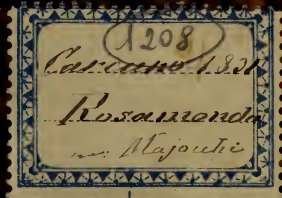 1208
Carcano 1831
Rosamonda
Majocchi